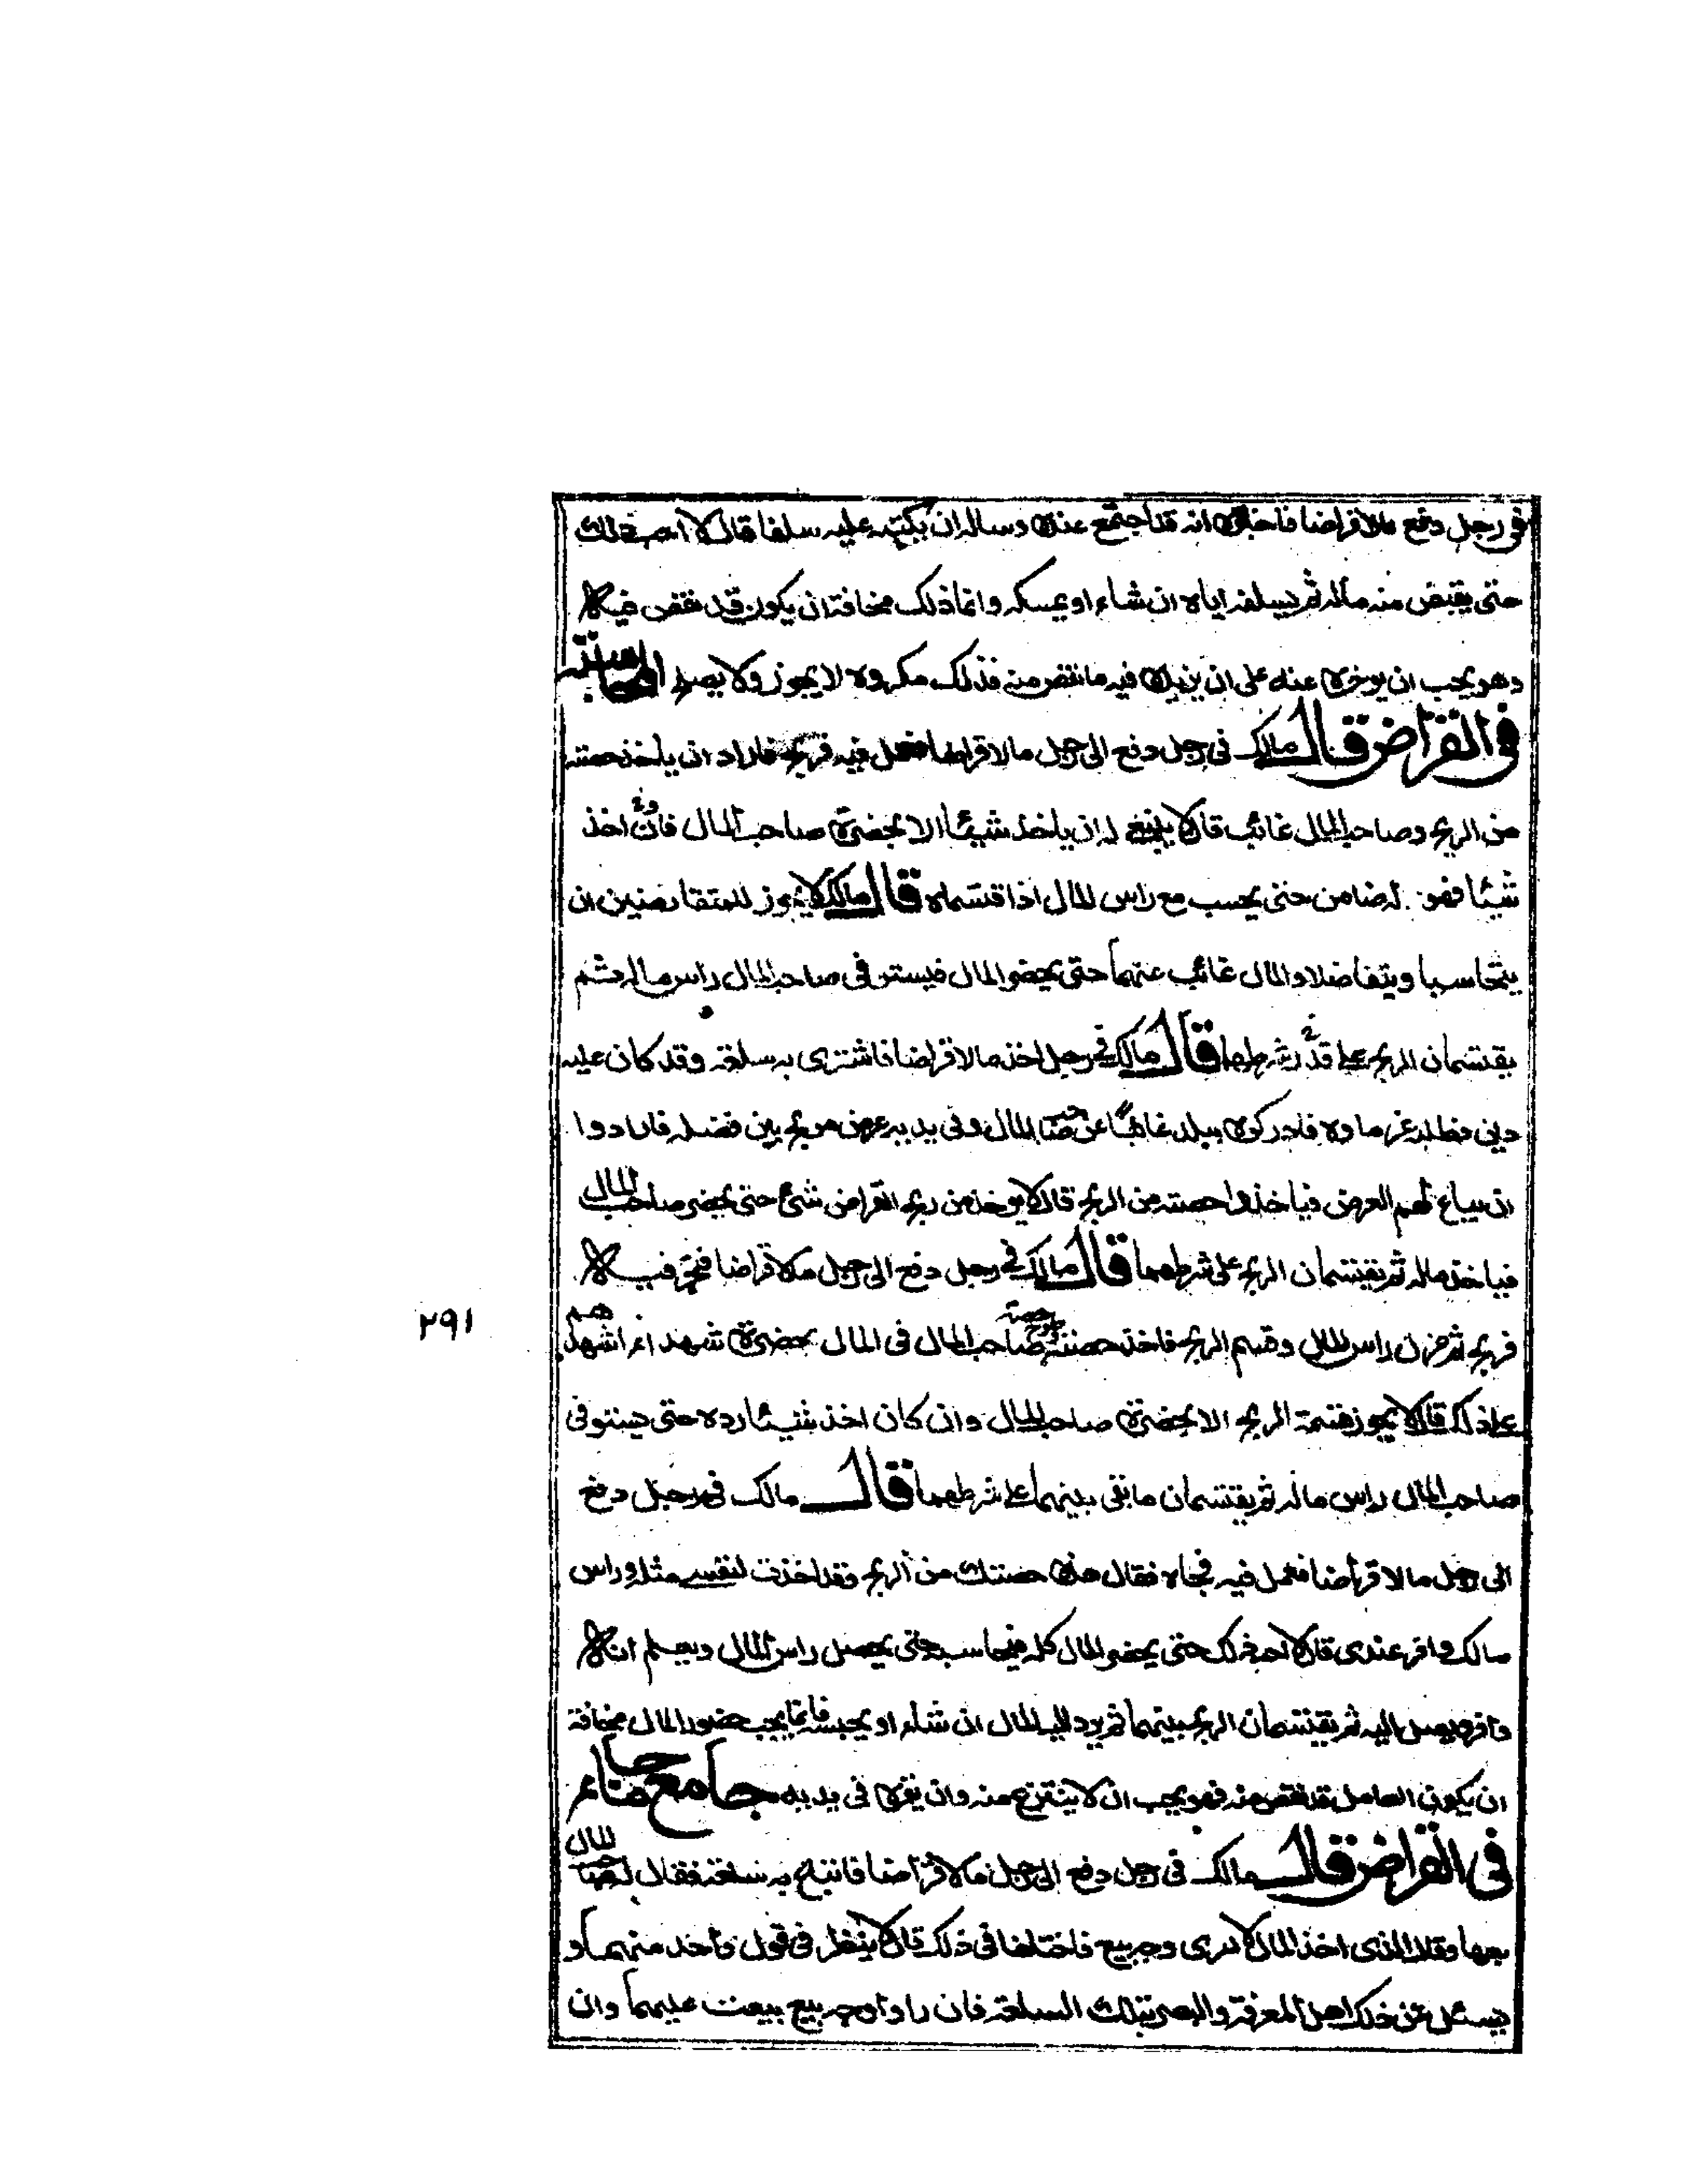 في رجل دفع مالا قراضا فاخبره انه قد اجتمع عنده وساله ان يكتبه عليه سلفا قال لا احب ذالك
حتى يقبض منه ماله ثم يسلفه اياه ان شاء او يمسكه وانما ذلك مخافة ان يكون قد نقص فيه
وهو يحب ان يوخره عنه على ان يزيده فيه ما نقص منه فذلك مكروه لا يجوز ولا يصلح المحاسبة
في القراض قال مالك في رجل دفع الى رجل مالا قراضا فعمل فيه فربح فاراد ان ياخذ حصته
من الربح وصاحب المال غائب قال لا ينبغي له ان ياخذ شيئا الا بحضرة صاحب المال فان اخذ
شيئا فهو له ضامن حتى يحسب مع راس المال اذا اقتسماه قال مالك لا يجوز للمتقارضين ان
يتحاسبا ويتفاضلا والمال غائب عنهما حتى يحضر المال فيستوفى صاحب المال راس ماله ثم
يقتسمان الربح على قدر شرطهما قال مالك في رجل اخذ مالا قراضا فاشترى به سلعة وقد كان عليه
دين فطلبه غرماوه فادركوه ببلد غائبا عن صاحب المال وفى يديه عرض مربح بين فضله فارادوا
ان يباع لهم العرض فياخذوا حصته من الربح قال لا يوخذ من ربح القراض شئ حتى يحضر صاحب المال
فياخذ ماله ثم يقتسمان الربح على شرطهما قال مالك في رجل دفع الى رجل مالا قراضا فتجر فيه
فربح ثم عزل راس المال وقسم الربح فاخذ حصته وطرح حصة صاحب المال فى المال بحضرة شهداء اشهدهم
على ذلك قال لا يجوز قسمة الربح الا بحضرة صاحب المال وان كان اخذ شيئا رده حتى يستوفى
صاحب المال راس ماله ثم يقتسمان ما بقى بينهما على شرطهما قال مالك في رجل دفع
الى رجل مالا قراضا فعمل فيه فجاه فقال هذه حصتك من الربح وقد اخذت لنفسي مثله وراس
مالك وافر عندى قال لا احب ذلك حتى يحضر المال كله فيحاسبه حتى يحصل راس المال ويعلم انه
وافر ويصل اليه ثم يقتسمان الربح بينهما ثم يرد اليه المال ان شاء او يحبسه فانما يجب حضور المال مخافة
ان يكون العامل قد نقص منه فهو يحب ان لا ينتزع منه وان يقره في يديه جامع ما جاء
في القراض قال مالك في رجل دفع الى رجل مالا قراضا فابتاع به سلعة فقال له صاحب المال
بعها وقال الذى اخذ المال لا ارى وجه بيع فاختلفا فى ذلك قال لا ينظر فى قول واحد منهما و
يسئل عن ذلك اهل المعرفة والبصر بتلك السلعة فان راوا وجه بيع بيعت عليهما وان
٢٩١